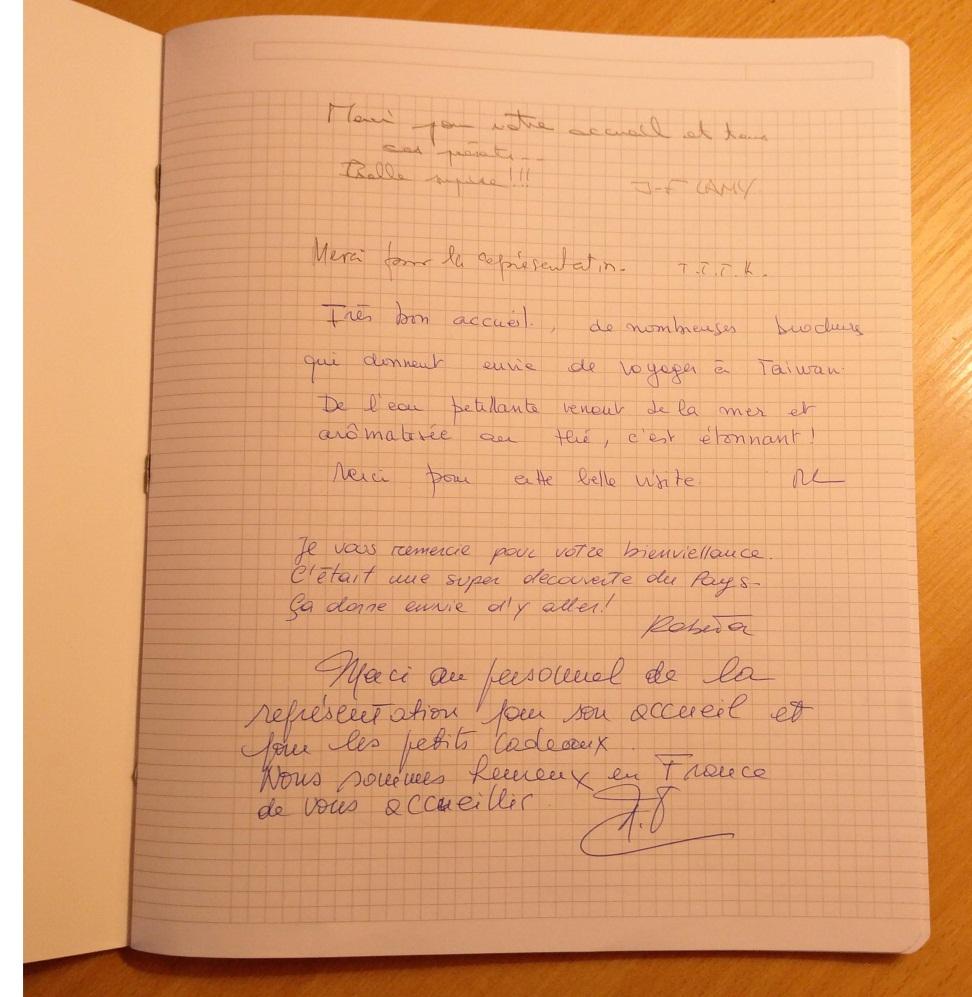 Merci pour votre accueil et tous
ces présents...
Belle surprise!!!
J-F LAMY
Merci pour la représentation. T.T.T.K.
Très bon accueil, de nombreuses brochures
qui donnent envie de voyager à Taiwan.
De l'eau petillante venant de la mer et
arômatisée au thé, c'est étonnant!
Merci pour cette belle visite.
Je vous remercie pour votre bienviellance.
C'était une super decouverte du Pays.
Ça donne envie d'y aller!
Roberta
Merci au personnel de la
représentation pour son accueil et
pour les petits cadeaux.
Nous sommes heureux en France
de vous accueillir